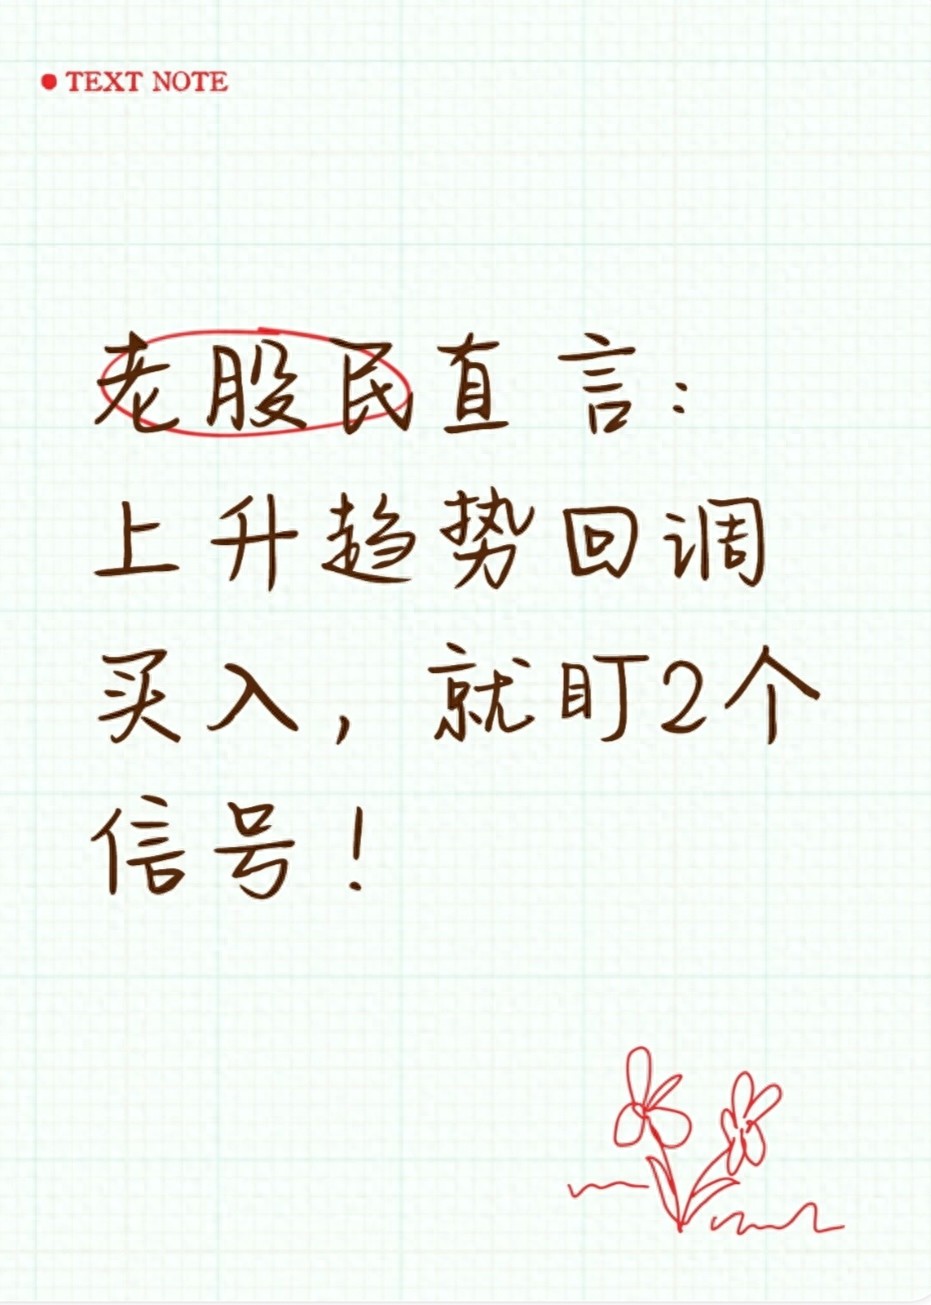 TEXT NOTE
老股民直言：
上升趋势回调
买入，就盯2个
信号！